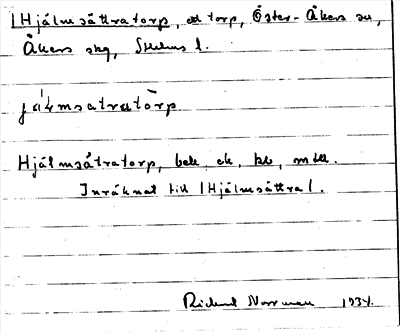 |Hjälmsättratorp, ett torp, Öster-Åkers sn,
Åkers skg, Sthlms l.
Hjälmsåtratorp, bek, ek, kb, mtk.
Inräknat till |Hjälmsättra|.
Rickard Norrman 1934.